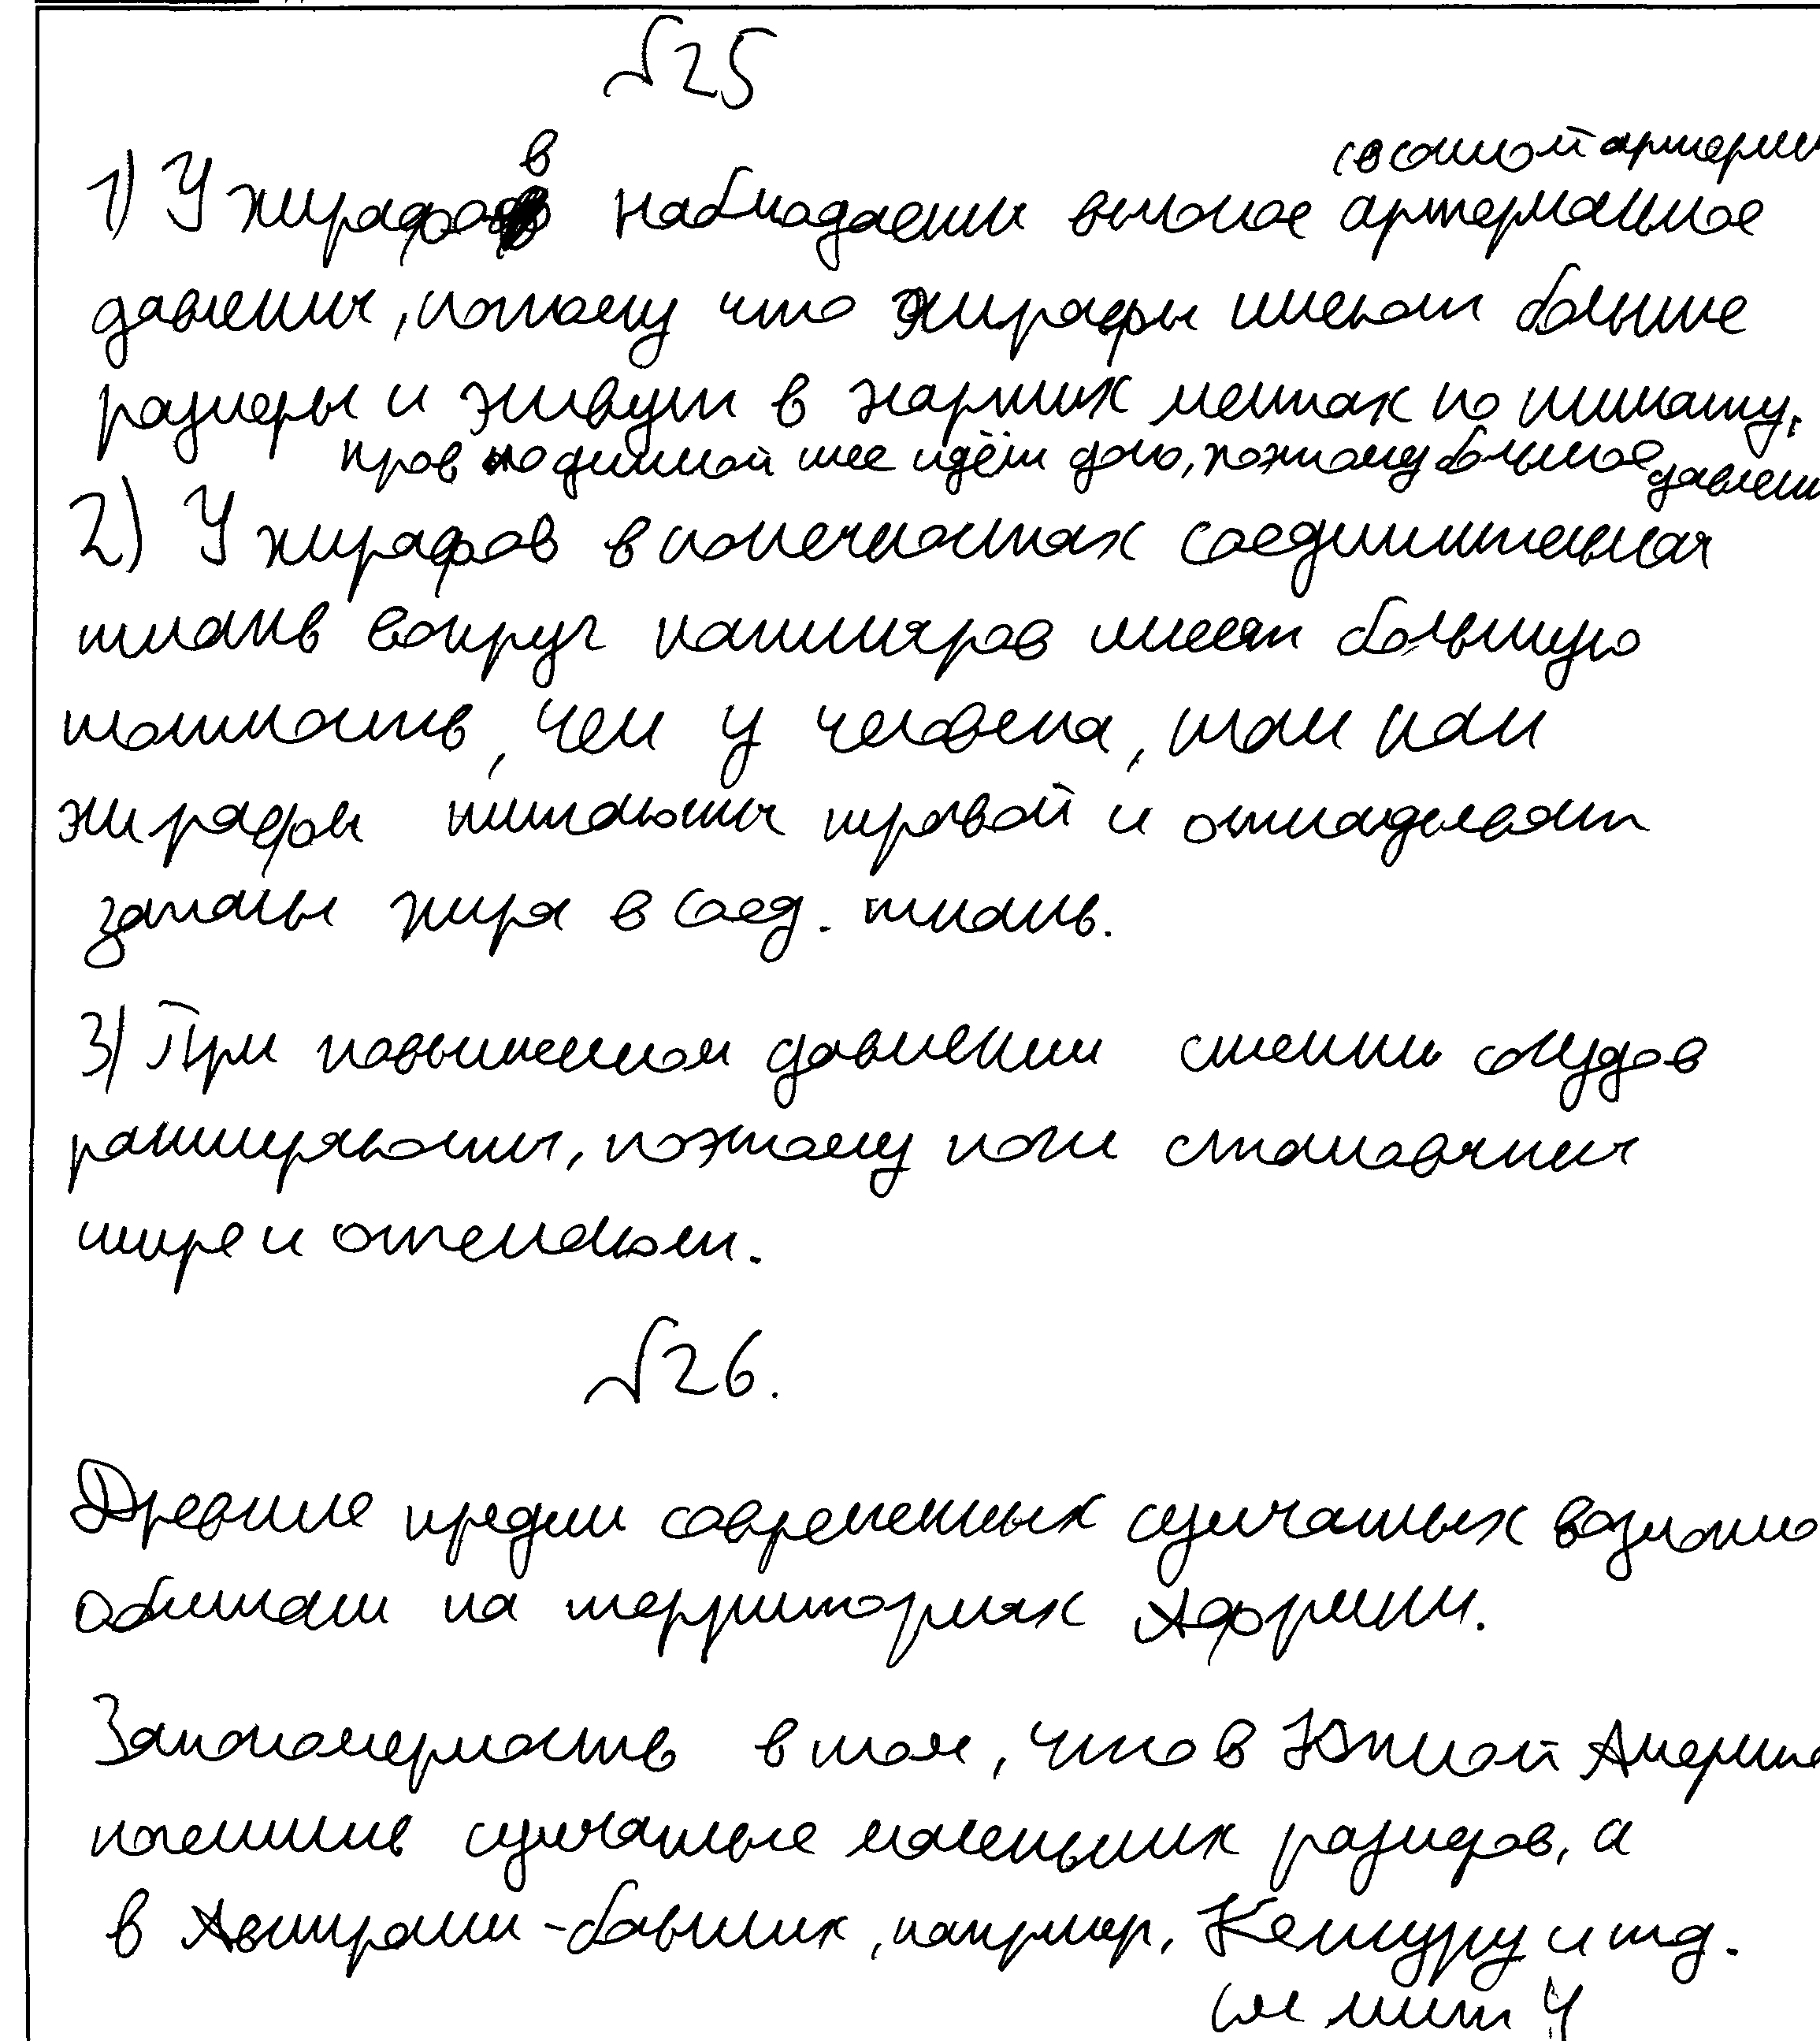 №25
в сонной артерии
1) У жирафов наблюдается высокое артериальное
давление, потому что жирафы имеют больше
размеры и живут в жарких местах по климату.
кров по длинной шее идём дого, поэтому большое давлени
2) У жирафов в конечностях соединительная
ткань вокруг капиляров имеет большую
плотность, чем у человека, так как
жирафы питаются травой и откладывают
запасы жира в соед. ткань.
3) При повышенном давлении стенки сосудов
расширяются, поэтому ноги становятся
шире и отекают.
№26.
Древние предки современных сумчатых возможно
обитали на территориях Африки.
Закономерность в том, что в Южной Америке
поселились сумчатые маленьких размеров, а
в Австралии - больших, например, Кенгуру и тд.
см лист 4